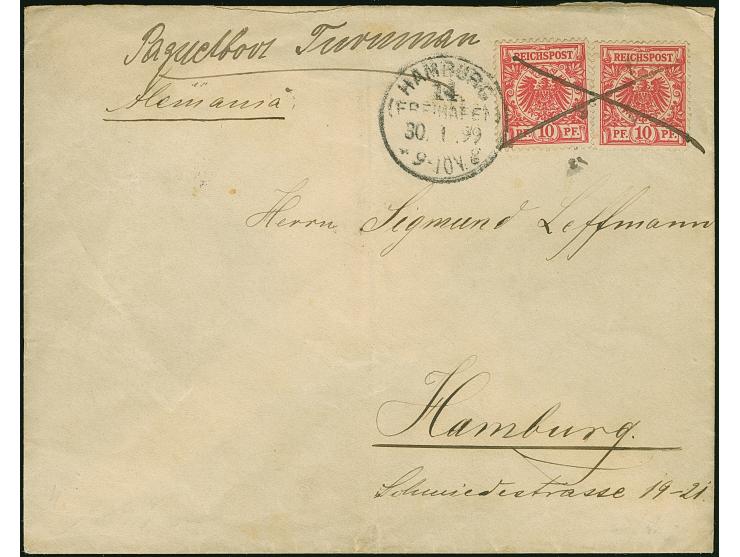 Paquetboot Tucuman
Alemania
REICHSPOST
PF. 10 PF.
REICHSPOST
PF. 10 PF.
HAMBURG
14.
(FREIHAFEN)
30. 1. 99
* 9-10V. *
Herrn Sigmund Leffmann
Hamburg.
Schmiedestrasse 19-21.